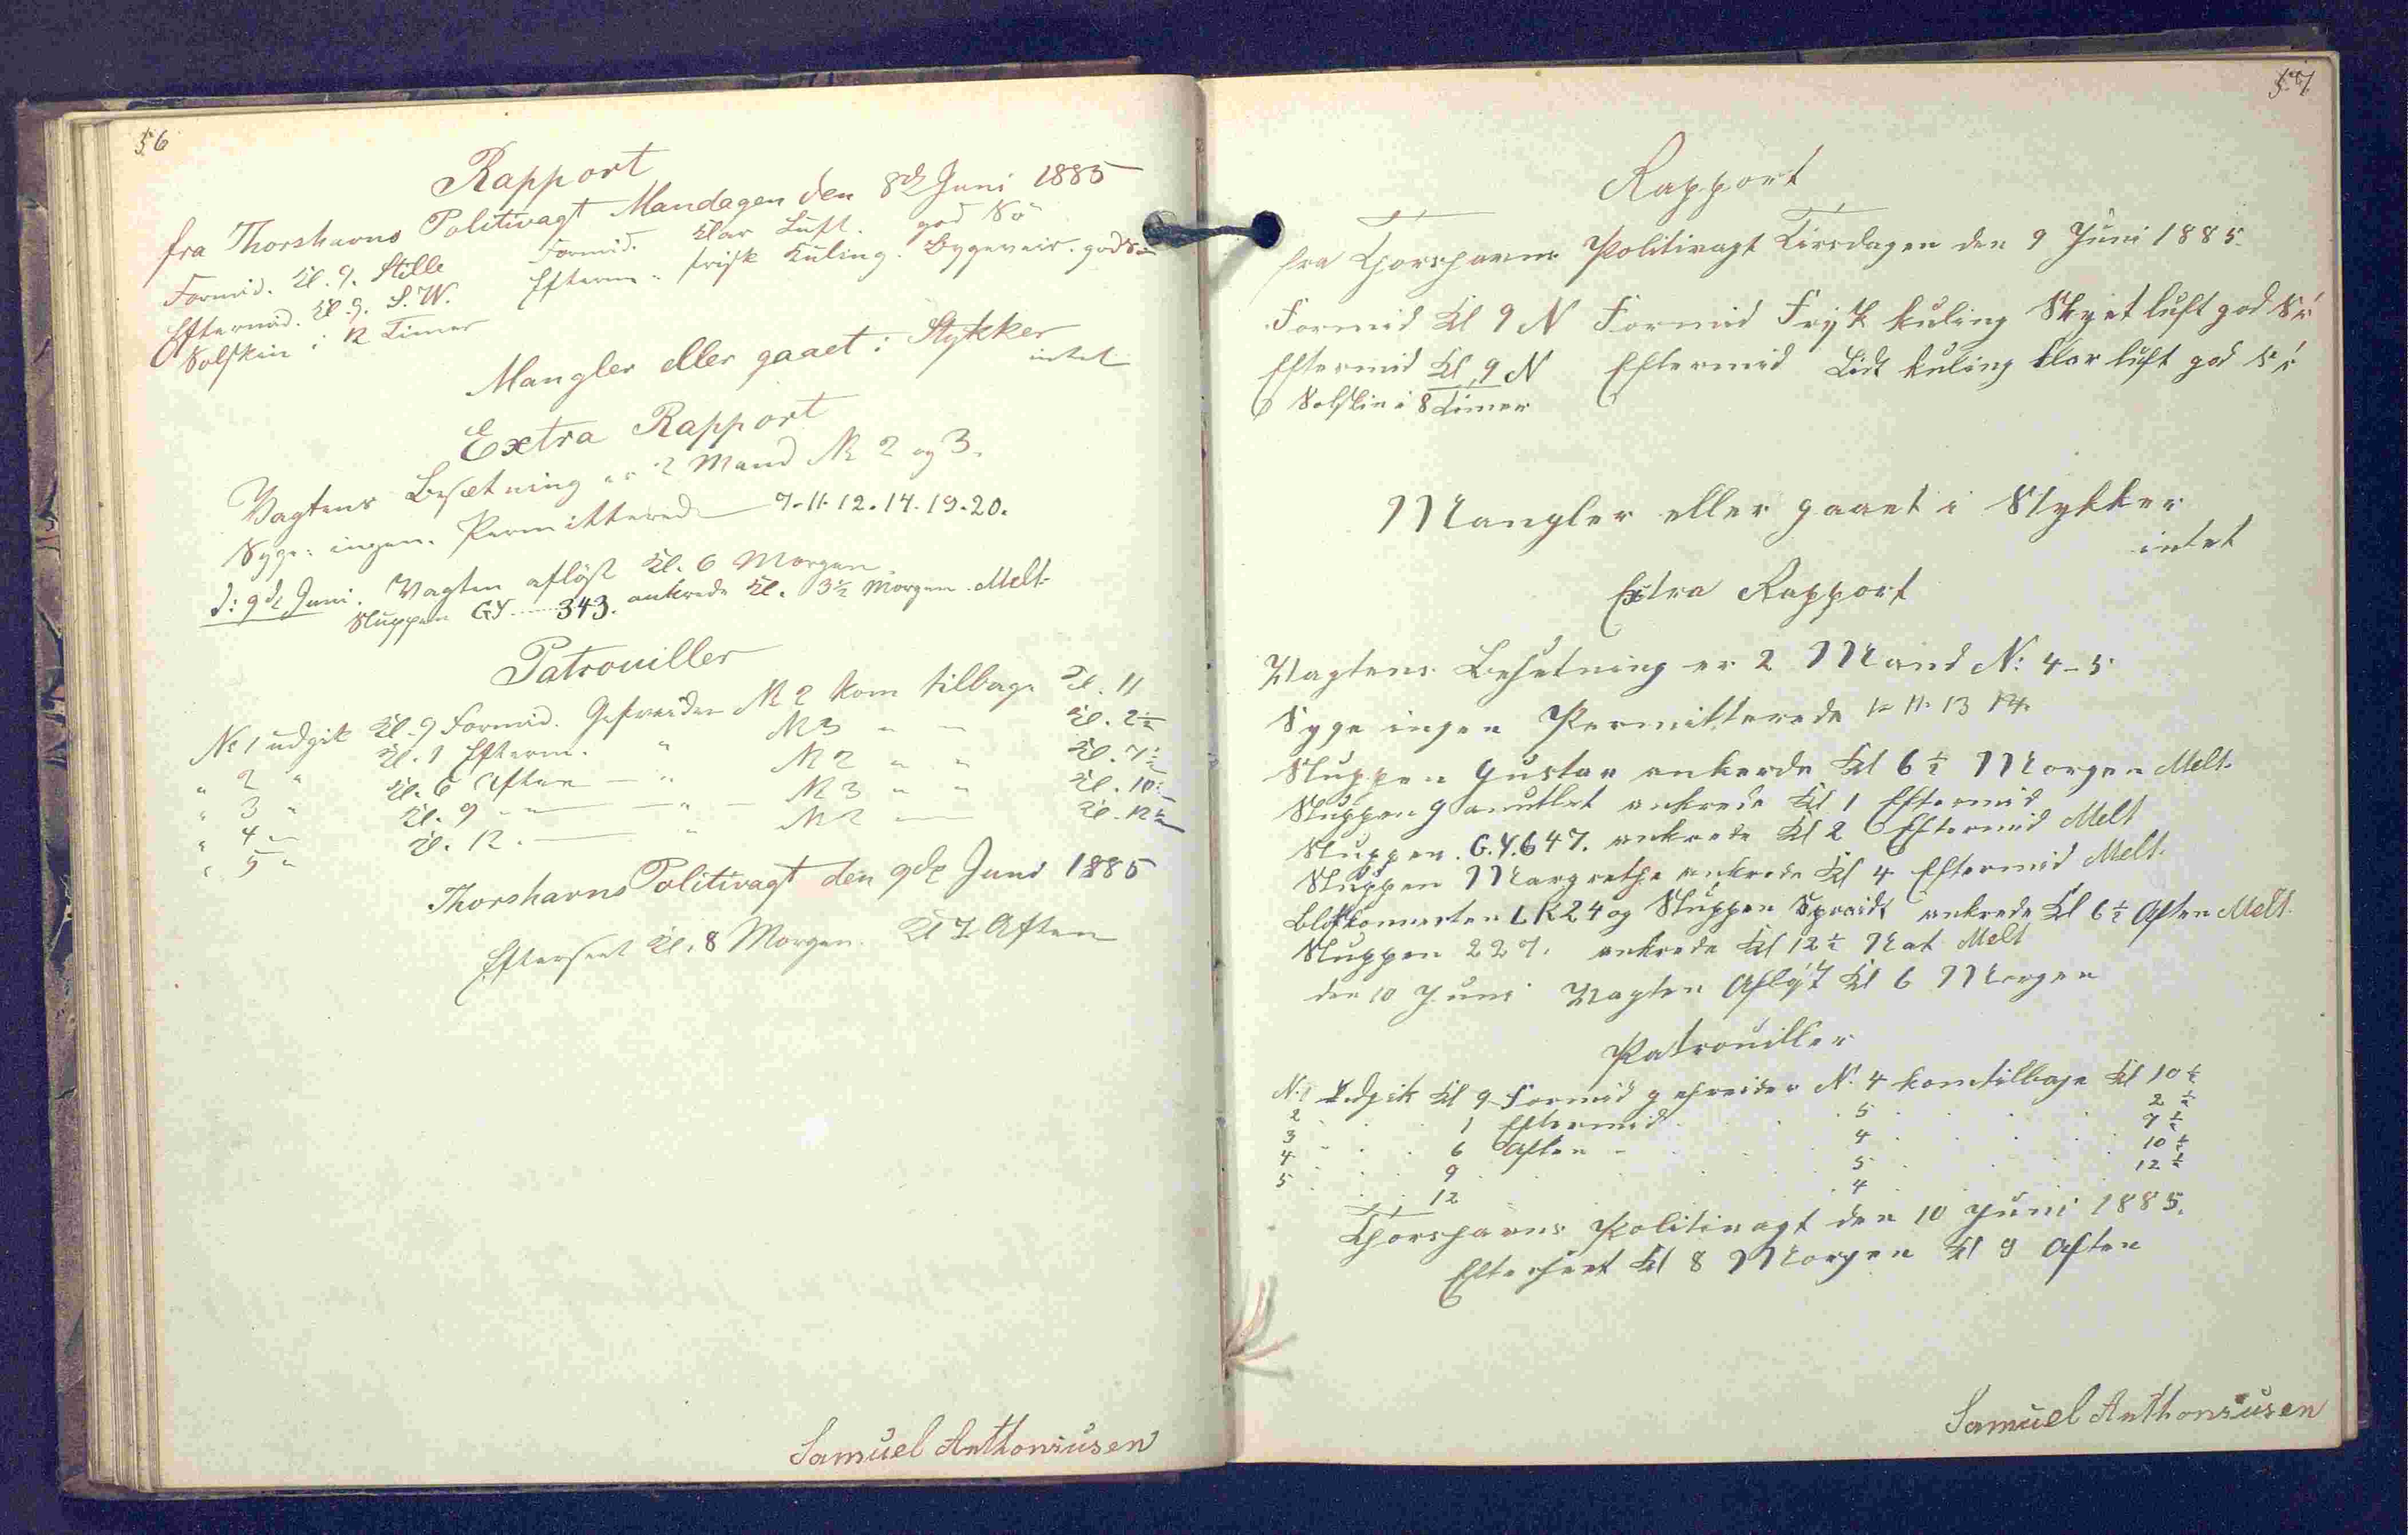 56
Rapport
fra Thorshavns Politivagt Mandagen den 8de Juni 1885
Formid. Kl. 9. Stille Formid. Klar Luft. god Sö
Eftermid. Kl. 9. S.W. Efterm " frisk Kuling. Bygeveir. god Sö
Solskin i 12 Timer
Mangler eller gaaet i Stykker
intet
Extra Rapport
Vagtens Besætning er 2 Mand No 2 og 3.
Syge: ingen. Permitterede 7-11-12.14.19.20.
d: 9de Juni. Vagten aflöst Kl. 6 Morgen
Sluppen GY 343. ankrede Kl. 3½ Morgen. Melt.
Patrouiller
No 1 udgik Kl. 9 Formid. Gefreider No 2 kom tilbage Kl. 11
" 2 " Kl. 1 Efterm. " No 3 " " Kl. 2½
" 3 " Kl. 6 Aften — " No 2 " " Kl. 7½
" 4 " Kl. 9 " — " No 3 " " Kl. 10½
" 5 " Kl. 12. — " No 2 — Kl. 12½
Thorshavns Politivagt den 9de Juni 1885
Efterseet Kl. 8 Morgen. Kl 7 Aften
Samuel Anthoniusen
57
Rapport
fra Thorshavns Politivagt Tirsdagen den 9 Juni 1885.
Formid Kl 9 N Formid Frisk kuling Skyet luft god Sö
Eftermid Kl 9 N Eftermid Lidt kuling klar luft god Sö
Solskin i 8 Timer
Mangler eller gaaet i Stykker
intet
Extra Rapport
Vagtens Besetning er 2 Mand No: 4-5
Syge ingen Permitterede 11. 13 14.
Sluppen Gustav ankerde Kl 6½ Morgen Melt.
Sluppen ankrede Kl 1 Eftermid
Sluppen. G.Y.647. ankrede Kl 2 Eftermid Melt
Sluppen Margrethe ankrede Kl 4 Eftermid Melt.
LK24 og Sluppen ankrede Kl 6½ Aften Melt.
Sluppen 227. ankrede Kl 12½ Nat Melt
den 10 Juni Vagten Afløst Kl 6 Morgen
Patrouiller
No. 1 Udgik Kl 9 Formid gefreider No. 4 kom tilbage Kl 10½
2 1 Eftermid 5 2½
3 6 Aften 4 7½
4 9 5 10½
5 12 4 12½
Thorshavns Politivagt den 10 Juni 1885.
Efterseet Kl 8 Morgen Kl 9 Aften
Samuel Anthoniusen